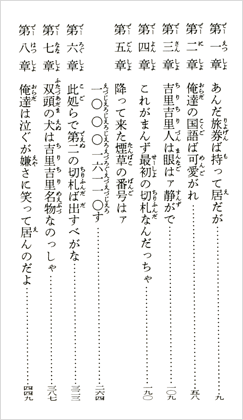 第一章 あんだ旅券ば持って居だが……九
第二章 俺達の国語ば可愛がれ……五八
第三章 吉里吉里人は眼はァ静がで……一〇九
第四章 これがまんず最初の切札なんだっちゃ……一九〇
第五章 降って来た煙草の番号はァ
一〇〇〇〇二六一一一〇す……二六四
第六章 此処らで第二の切札ば出すべがな……三二三
第七章 双頭の犬は吉里吉里名物なのっしゃ……三八七
第八章 俺達は泣ぐが嫌さに笑って居んのだよ……四四九